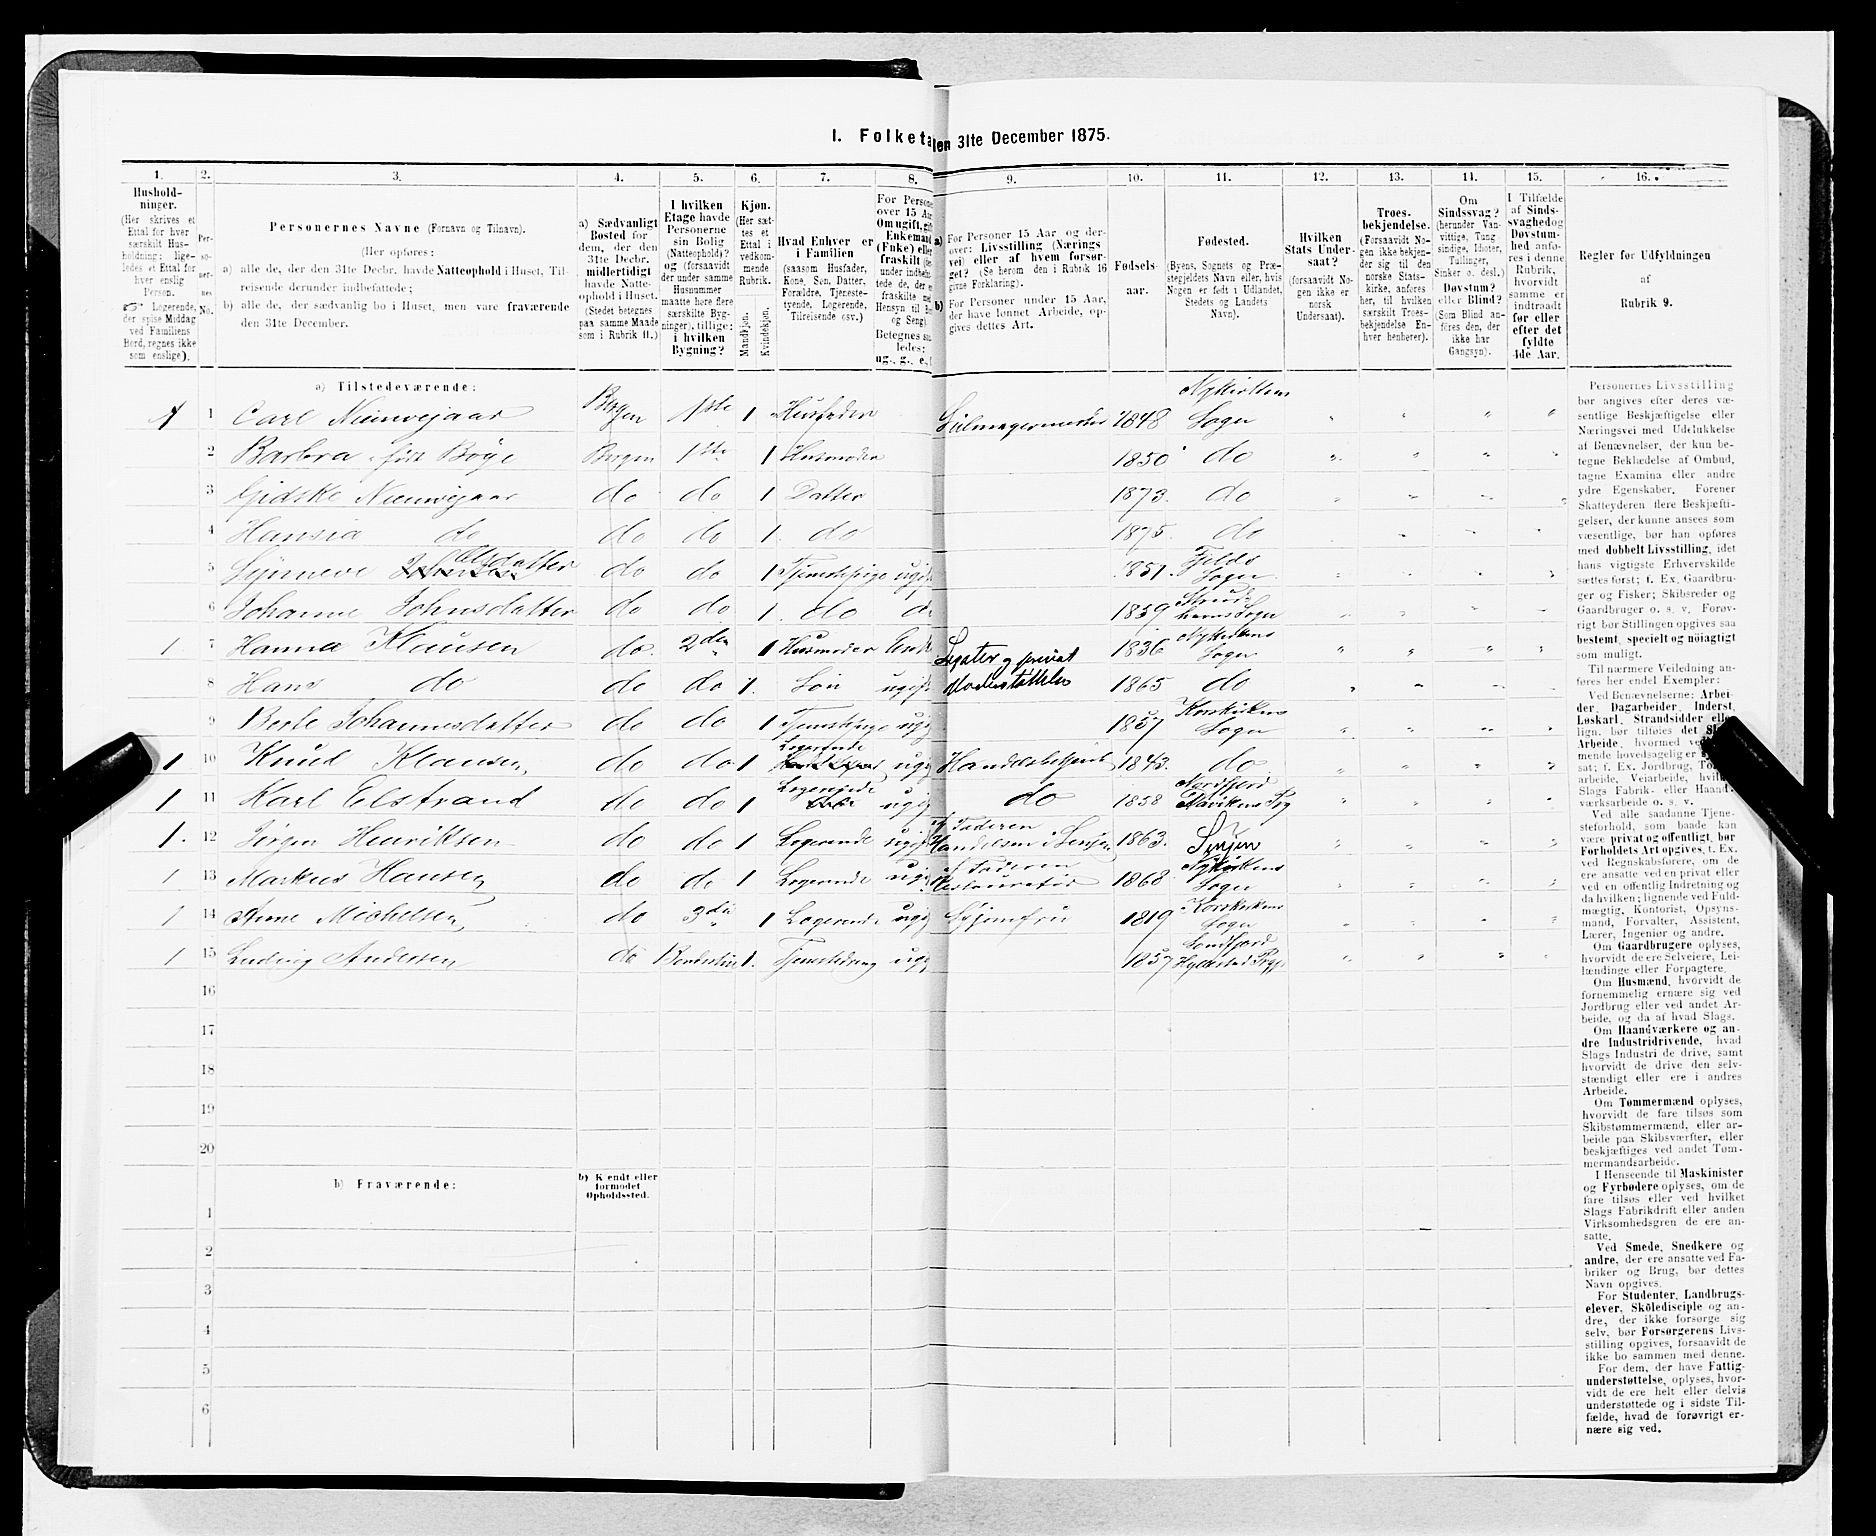 I. Folketa len 31te December 1875.
1. 2. 3. 4. 5. 6. 7. 8. 9. 10. 11. 12. 13. 14. 15. 16.
Hushold-
ninger.
(Her skrives et
Ettal for hver
særskilt Hus-
holdning; lige-
ledes et Ettal for
hver enslig
Person.
☞ Logerende,
der spise Middag
ved Familiens
Bord, regnes ikke
som enslige).
Per-
so-
ner-
nes
No.
Personernes Navne (Fornavn og Tilnavn).
(Her opføres:
a) alle de, der den 31te Decbr. havde Natteophold i Huset, Til-
reisende derunder indbefattede;
b) alle de, der sædvanlig bo i Huset, men vare fraværende
den 31te December.
a) Sædvanligt
Bosted for
dem, der den
31te Decbr.
midlertidigt
havde Natte-
ophold i Huset.
(Stedet betegnes
paa samme Maade
som i Rubrik 11.)
I hvilken
Etage havde
Personerne
sin Bolig
(Natteophold)?
og (forsaavidt
der under samme
Husnummer
maatte høre flere
særskilte Byg-
ninger), tillige:
i hvilken
Bygning?
Kjøn.
(Her sæt-
tes et
Ettal i
vedkom-
mende
Rubrik.
Mandkjøn.
Kvindekjøn.
Hvad Enhver er
i Familien
(saasom Husfader,
Kone, Søn, Datter,
Forældre, Tjeneste-
tyende, Logerende,
Tilreisende osv.)
For Persone
over 15 Aar
Om ugift, gift
Enkemand
(Enke) elle
fraskilt (he
under indbefat-
tede de, der e
fraskilte me
Hensyn til Bo
og Seng).
Betegnes saa-
ledes:
ug., g., e., f
a) For Personer 15 Aar og der-
over: Livsstilling (Nærings
vei) eller af hvem forsør-
get? (Se herom den i Rubrik 16
givne Forklaring).
b) For Personer under 15 Aar,
der have lønnet Arbeide, op-
gives dettes Art.
Fødsels-
aar.
Fødested.
(Byens, Sognets og Præ-
stegjeldets Navn eller, hvis
Nogen er født i Udlandet,
Stedets og Landets
Navn).
Hvilken
Stats Under-
saat?
(forsaavidt No-
gen ikke er
norsk
Undersaat).
Troes-
bekjendelse.
(Forsaavidt No-
gen ikke bekjen-
der sig til den
norske Stats-
kirke, anføres
her, til hvilken
særskilt Troes-
bekjendelse En-
hver henhører).
Om
Sindssvag?
(herunder Van-
vittige, Tung
sindige, Idioter,
Tullinger,
Sinker o. desl.)
Døvstum?
eller Blind?
(Som Blind an-
føres den, der
ikke har
Gangsyn).
I Tilfælde
af Sinds-
svaghed og
Døvstum-
hed anfø-
res i denne
Rubrik,
hvorvidt
samme er
indtraadt
før eller
efter det
fyldte
4de Aar.
Regler for Udfyldningen
af
Rubrik 9.
a) Tilstedeværende:
1 Carl Bergen 1ste 1 Husfader 1848 Nykirkens Sogn
2 Barbra født Böge Bergen 1ste 1 Husmoder 1850 do
3 Gidske do do 1 Datter 1873. do
4 Hansia do do do 1. do 1875. do
5 Synneve Olsdatter do do 1 Tjenestepige ugift 1851. Fjelds Sogn
6 Johanne Johnsdatter do do 1. do do 1859 Sogn
1. 7 Hanna Klausen do. 2den 1 Husmoder Enk Legater og privat 1836 Nykirkens Sogn
8 Hans do do do 1. Søn ugift Understøttelse 1865 do
9 Berte Johannesdatter do do 1 Tjenestepige ugi 1857 Korskirkens Sogn
1 10 Knud Klausen do do 1 Logerende ugi Handelsbetjent 1843. do
1 11 Karl Elstrand do do 1 Logerende ugi do 1858 Nordfjord
1. 12 Jørgen Henriksen do do 1 Logerende ugift af Faderen Handelsm i Senjen 1863. Senjen
1 13 Markus Hansen do do 1 Logerende ugi af Faderen Restauratør 1868 Nykirkens Sogn
1 14 Anne Michelsen do 3die 1 Logerende ugi Syjomfru 1819 Korskirkens Sogn
1 15 Ludvig Andersen do 1. Tjenestedreng ugi 1857 Hyllestad
16
17
18
19
20
b) Fraværende:
b) Kjendt eller
formodet
Opholdssted.
1
2
3
4
5
6
Personernes Livsstilling
bør angives efter deres væ-
sentlige Beskjæftigelse eller
Næringsvei med Udelukkelse
af Benævnelser, der kun be-
tegne Beklædelse af Ombud,
tagne Examina eller andre
ydre Egenskaber. Forener
Skatteyderen flere Beskjæfti-
gelser, der kunne ansees som
væsentlige, bør han opføres
med dobbelt Livsstilling, idet
hans vigtigste Erhvervskilde
sættes først; f. Ex. Gaardbru-
ger og Fisker; Skibsreder og
Gaardbruger o. s. v. Forøv-
rigt bør Stillingen opgives saa
bestemt, specielt og nöiagtigt
som muligt.
Til nærmere Veiledning an-
føres her endel Exempler:
Ved Benævnelserne: Arbei-
der, Dagarbeider, Inderst,
Løskarl, Strandsidder elle
lign. bør tilføies det Sl
Arbeide, hvormed ve
mende hovedsagelig er
sat; f. Ex. Jordbrug, Tø
arbeide, Veiarbeide, hvilk
Slags Fabrik- eller Haand-
værksarbeide o. s. v.
Ved alle saadanne Tjene-
steforhold, som baade kan
være privat og offentligt, bør
Forholdets Art opgives, f. Ex.
ved Regnskabsførere, om de
ere ansatte ved en privat eller
ved en offentlig Indretning og
da hvilken; lignende ved Fuld-
mægtig, Kontorist, Opsyns-
mand, Forvalter, Assistent,
Lærer, Ingeniør og andre.
Om Gaardbrugere oplyses,
hvorvidt de ere Selveiere, Lei-
lændinge eller Forpagtere.
Om Husmænd, hvorvidt de
fornemmelig ernære sig ved
Jordbrug eller ved andet Ar-
beide, og da af hvad Slags.
Om Haandværkere og an-
dre Industridrivende, hvad
Slags Industri de drive, samt
hvorvidt de drive den selv-
stændigt eller ere i andres
Arbeide.
Om Tømmermænd oplyses,
hvorvidt de fare tilsøs som
Skibstømmermænd, eller ar-
beide paa Skibsværfter, eller
beskjæftiges ved andet Tøm-
mermandsarbeide.
I Henseende til Maskinister
og Fyrbødere oplyses, om de
fare tilsøs eller ved hvilket
Slags Fabrikdrift eller anden
Virksomhedsgren de ere an-
satte.
Ved Smede, Snedkere og
andre, der ere ansatte ved Fa-
briker og Brug, bør dettes
Navn opgives.
For Studenter, Landbrugs-
elever, Skoledisciple og an-
dre, der ikke forsørge sig
selv, bør Forsørgerens Livs-
stilling opgives, forsaavidt de
ikke bo sammen med denne.
For dem, der have Fattig-
understøttelse, oplyses, hvor-
vidt de ere helt eller delvis
understøttede og i sidste Til-
fælde, hvad de forøvrigt er-
nære sig ved.